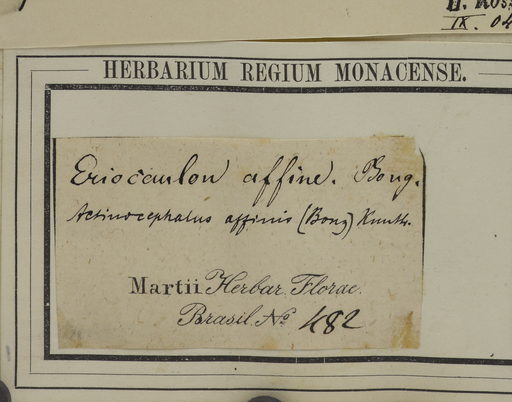 IX. 04
HERBARIUM REGIUM MONACENSE.
Eriocaulon affine. Bong.
Actinocephalus affinis (Bong) Kunth.
Martii Herbar. Florae
Brasil. No 482